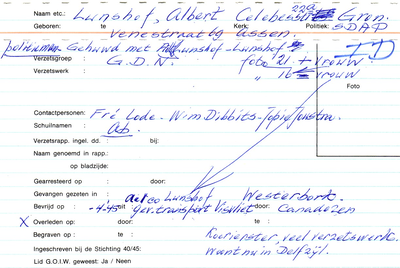 Naam etc.: Lunshof, Albert Celebesstr 22a Gron.
Geboren: te Kerk: Politiek: SDAP
Venestraat 69 Assen.
politieman - Gehuwd met Lunshof-Lunshof
Verzetsgroep : G.D.N. foto 21 + vrouw
Verzetswerk : " 16 vrouw
I D
Foto
Contactpersonen: Fré Lode - Wim Dibbits - Jopie Joustra.
Schuilnamen : Ab.
Verzetsrapp. ingel. dd. : bij:
Naam genoemd in rapp.:
op bladzijde:
Gearresteerd op : door:
Gevangen gezeten in : Lunshof Westerbork.
Bevrijd op : -4-'45 uit gev. transport Visvliet door: Canadezen
X Overleden op : door: te :
Begraven op : te : Koerierster, veel verzetswerk.
Ingeschreven bij de Stichting 40/45: want nu in Delfzijl.
Lid G.O.I.W. geweest: Ja / Neen